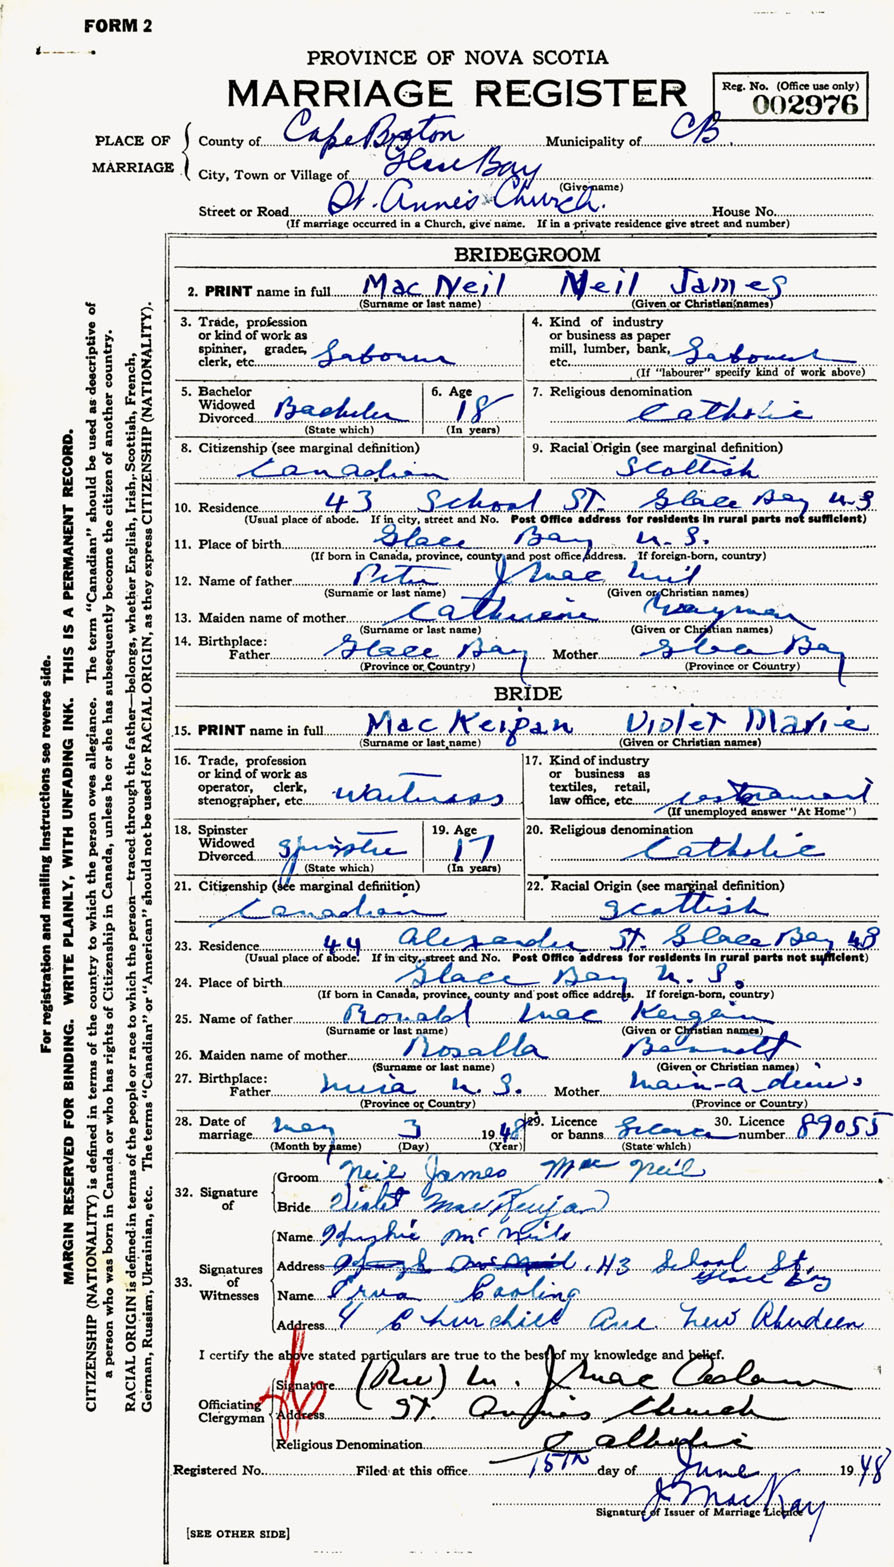 FORM 2
PROVINCE OF NOVA SCOTIA
MARRIAGE REGISTER
Reg. No. (Office use only)
002976
PLACE OF MARRIAGE
County of Cape Breton Municipality of CB
City, Town or Village of Glace Bay
(Give name)
Street or Road St. Anne's Church. House No.
(If marriage occurred in a Church, give name. If in a private residence give street and number)
BRIDEGROOM
2. PRINT name in full MacNeil Neil James
(Surname or last name) (Given or Christian names)
3. Trade, profession or kind of work as spinner, grader, clerk, etc. Labourer
4. Kind of industry or business as paper mill, lumber, bank, etc. Labourer
(If "labourer" specify kind of work above)
5. Bachelor Widowed Divorced Bachelor
(State which)
6. Age 18
(In years)
7. Religious denomination Catholic
8. Citizenship (see marginal definition) Canadian
9. Racial Origin (see marginal definition) Scottish
10. Residence 43 School St. Glace Bay N.S
(Usual place of abode. If in city, street and No. Post Office address for residents in rural parts not sufficient)
11. Place of birth Glace Bay N.S.
(If born in Canada, province, county and post office address. If foreign-born, country)
12. Name of father Peter J MacNeil
(Surname or last name) (Given or Christian names)
13. Maiden name of mother Catherine
(Surname or last name) (Given or Christian names)
14. Birthplace:
Father Glace Bay Mother Glace Bay
(Province or Country) (Province or Country)
BRIDE
15. PRINT name in full MacKeigan Violet Marie
(Surname or last name) (Given or Christian names)
16. Trade, profession or kind of work as operator, clerk, stenographer, etc. Waitress
17. Kind of industry or business as textiles, retail, law office, etc. restaurant
(If unemployed answer "At Home")
18. Spinster Widowed Divorced Spinster
(State which)
19. Age 17
(In years)
20. Religious denomination Catholic
21. Citizenship (see marginal definition) Canadian
22. Racial Origin (see marginal definition) Scottish
23. Residence 44 Alexander St. Glace Bay
(Usual place of abode. If in city, street and No. Post Office address for residents in rural parts not sufficient)
24. Place of birth Glace Bay N.S.
(If born in Canada, province, county and post office address. If foreign-born, country)
25. Name of father Ronald MacKeigan
(Surname or last name) (Given or Christian names)
26. Maiden name of mother Bennett
(Surname or last name) (Given or Christian names)
27. Birthplace:
Father Mira N.S. Mother Main-a-dieu
(Province or Country) (Province or Country)
28. Date of marriage May 3 1948
(Month by name) (Day) (Year)
29. Licence or banns Licence
(State which)
30. Licence number 89055
32. Signature of
Groom Neil James MacNeil
Bride Violet MacKeigan
33. Signatures of Witnesses
Name Hughie McNeil
Address 43 School St. Glace Bay
Name
Address 4 Churchill Ave New Aberdeen
I certify the above stated particulars are true to the best of my knowledge and belief.
Officiating Clergyman
Signature (Rev) M. J. Mac
Address St. Anne's Church
Religious Denomination Catholic
Registered No. Filed at this office 15TH day of June 1948
J MacKay
Signature of Issuer of Marriage Licence
[SEE OTHER SIDE]
For registration and mailing instructions see reverse side.
MARGIN RESERVED FOR BINDING. WRITE PLAINLY, WITH UNFADING INK. THIS IS A PERMANENT RECORD.
CITIZENSHIP (NATIONALITY) is defined in terms of the country to which the person owes allegiance. The term "Canadian" should be used as descriptive of
a person who was born in Canada or who has rights of Citizenship in Canada, unless he or she has subsequently become the citizen of another country.
RACIAL ORIGIN is defined in terms of the people or race to which the person—traced through the father—belongs, whether English, Irish, Scottish, French,
German, Russian, Ukrainian, etc. The terms "Canadian" or "American" should not be used for RACIAL ORIGIN, as they express CITIZENSHIP (NATIONALITY).